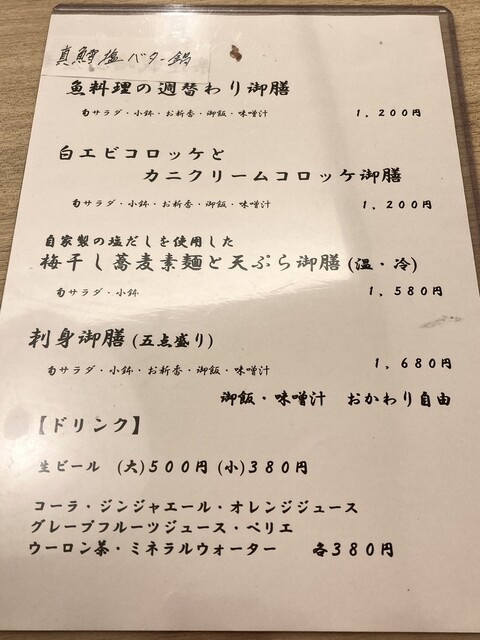 真鱈塩バター鍋
魚料理の週替わり御膳
旬サラダ・小鉢・お新香・御飯・味噌汁 1,200円
白エビコロッケと
カニクリームコロッケ御膳
旬サラダ・小鉢・お新香・御飯・味噌汁 1,200円
自家製の塩だしを使用した
梅干し蕎麦素麺と天ぷら御膳(温・冷)
旬サラダ・小鉢 1,580円
刺身御膳(五点盛り)
旬サラダ・小鉢・お新香・御飯・味噌汁 1,680円
御飯・味噌汁 おかわり自由
【ドリンク】
生ビール (大)500円 (小)380円
コーラ・ジンジャエール・オレンジジュース
グレープフルーツジュース・ペリエ
ウーロン茶・ミネラルウォーター 各380円